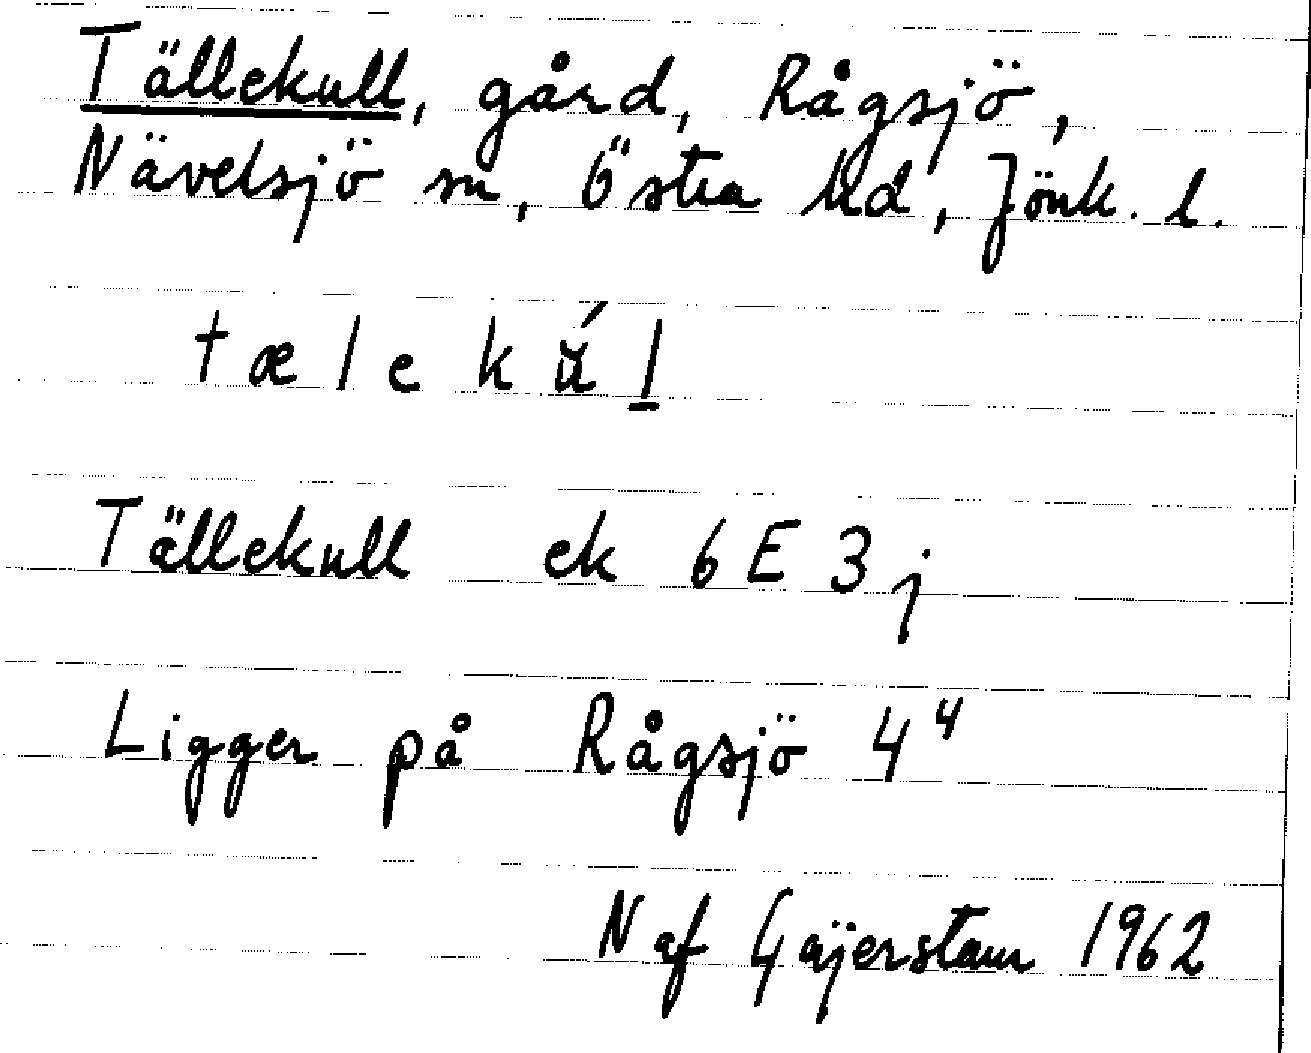 Tällekull, gård, Rågsjö,
Nävelsjö sn, Östra hd, Jönk. l.
tælekúl
Tällekull ek 6E3j
Ligger på Rågsjö 4⁴
N af Geijerstam 1962